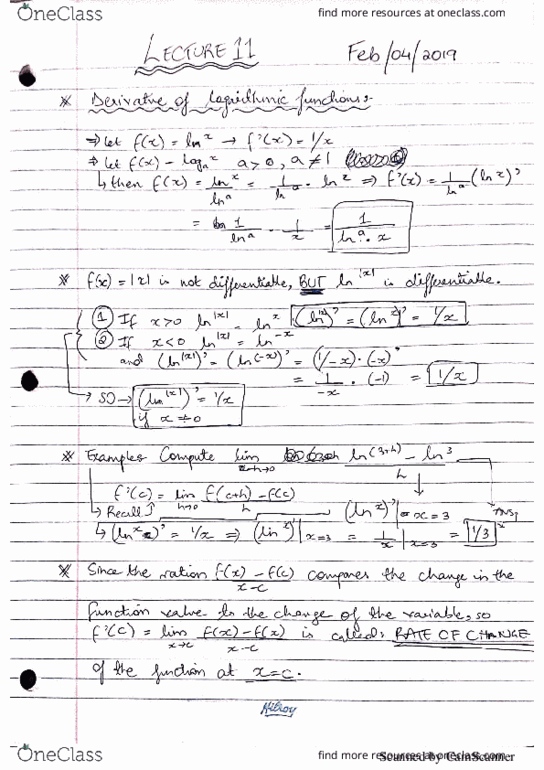 OneClass find more resources at oneclass.com
LECTURE 11 Feb/04/2019
* Derivative of logarithmic functions:-
⇒ let f(x) = ln^x → f'(x) = 1/x
⇒ let f(x) - log_a^x a > 0, a ≠ 1
↳ then f(x) = ln^x/ln^a = 1/ln^a · ln^x ⇒ f'(x) = 1/ln^a (ln^x)'
= 1/ln^a · 1/x = 1/ln^a · x
* f(x) = |x| is not differentiable, BUT ln^|x| is differentiable.
① If x>0 ln^|x| = ln^x (ln^|x|)' = (ln^x)' = 1/x
② If x<0 ln^|x| = ln^-x
and (ln^|x|)' = (ln(-x))' = (1/-x)·(-x)'
= 1/-x · (-1) = 1/x
→ SO → (ln^|x|)' = 1/x
if x ≠ 0
* Examples Compute lim h→0 ln(3+h) - ln^3 / h
f'(c) = lim h→0 f(c+h) - f(c) / h
→ Recall↑ (ln^x)'| x=3 Ans,
↳ (ln^x)' = 1/x ⇒ (ln^x)'|x=3 = 1/x|x=3 = 1/3
* Since the ration f(x) - f(c) / x-c compares the change in the
function value to the change of the variable, so
f'(c) = lim x→c f(x) - f(x) / x-c is called: RATE OF CHANGE
of the function at x=c.
OneClass find more resources at oneclass.com
Scanned by CamScanner